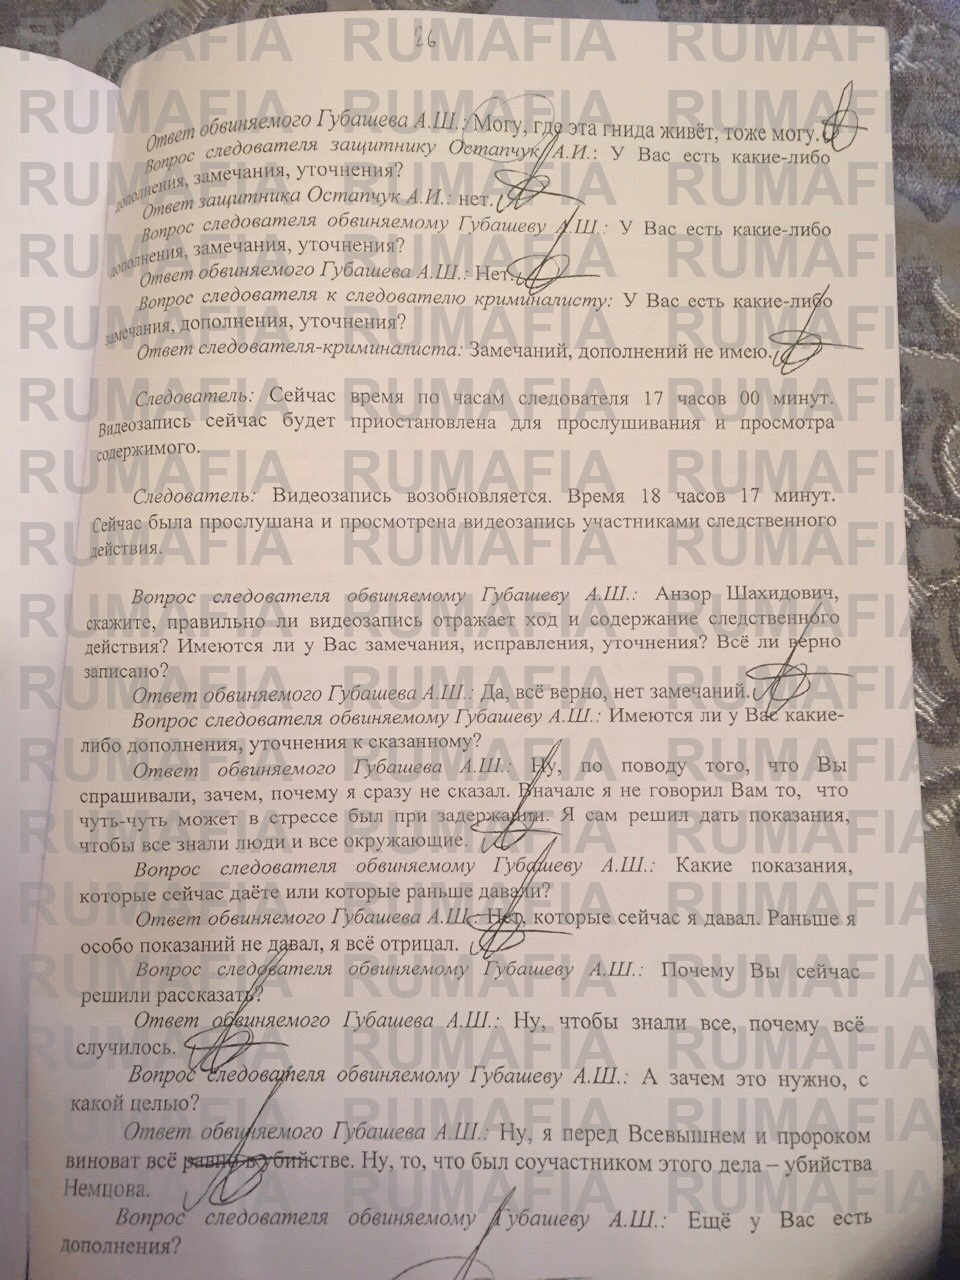 26
Ответ обвиняемого Губашева А.Ш.: Могу, где эта гнида живёт, тоже могу.
Вопрос следователя защитнику Остапчук А.И.: У Вас есть какие-либо
дополнения, замечания, уточнения?
Ответ защитника Остапчук А.И.: нет.
Вопрос следователя обвиняемому Губашеву А.Ш.: У Вас есть какие-либо
дополнения, замечания, уточнения?
Ответ обвиняемого Губашева А.Ш.: Нет.
Вопрос следователя к следователю криминалисту: У Вас есть какие-либо
замечания, дополнения, уточнения?
Ответ следователя-криминалиста: Замечаний, дополнений не имею.
Следователь: Сейчас время по часам следователя 17 часов 00 минут.
Видеозапись сейчас будет приостановлена для прослушивания и просмотра
содержимого.
Следователь: Видеозапись возобновляется. Время 18 часов 17 минут.
Сейчас была прослушана и просмотрена видеозапись участниками следственного
действия.
Вопрос следователя обвиняемому Губашеву А.Ш.: Анзор Шахидович,
скажите, правильно ли видеозапись отражает ход и содержание следственного
действия? Имеются ли у Вас замечания, исправления, уточнения? Всё ли верно
записано?
Ответ обвиняемого Губашева А.Ш.: Да, всё верно, нет замечаний.
Вопрос следователя обвиняемому Губашеву А.Ш.: Имеются ли у Вас какие-
либо дополнения, уточнения к сказанному?
Ответ обвиняемого Губашева А.Ш.: Ну, по поводу того, что Вы
спрашивали, зачем, почему я сразу не сказал. Вначале я не говорил Вам то, что
чуть-чуть может в стрессе был при задержании. Я сам решил дать показания,
чтобы все знали люди и все окружающие.
Вопрос следователя обвиняемому Губашеву А.Ш.: Какие показания,
которые сейчас даёте или которые раньше давали?
Ответ обвиняемого Губашева А.Ш.: Нет, которые сейчас я давал. Раньше я
особо показаний не давал, я всё отрицал.
Вопрос следователя обвиняемому Губашеву А.Ш.: Почему Вы сейчас
решили рассказать?
Ответ обвиняемого Губашева А.Ш.: Ну, чтобы знали все, почему всё
случилось.
Вопрос следователя обвиняемому Губашеву А.Ш.: А зачем это нужно, с
какой целью?
Ответ обвиняемого Губашева А.Ш.: Ну, я перед Всевышнем и пророком
виноват всё равно в убийстве. Ну, то, что был соучастником этого дела – убийства
Немцова.
Вопрос следователя обвиняемому Губашеву А.Ш.: Ещё у Вас есть
дополнения?
RUMAFIA